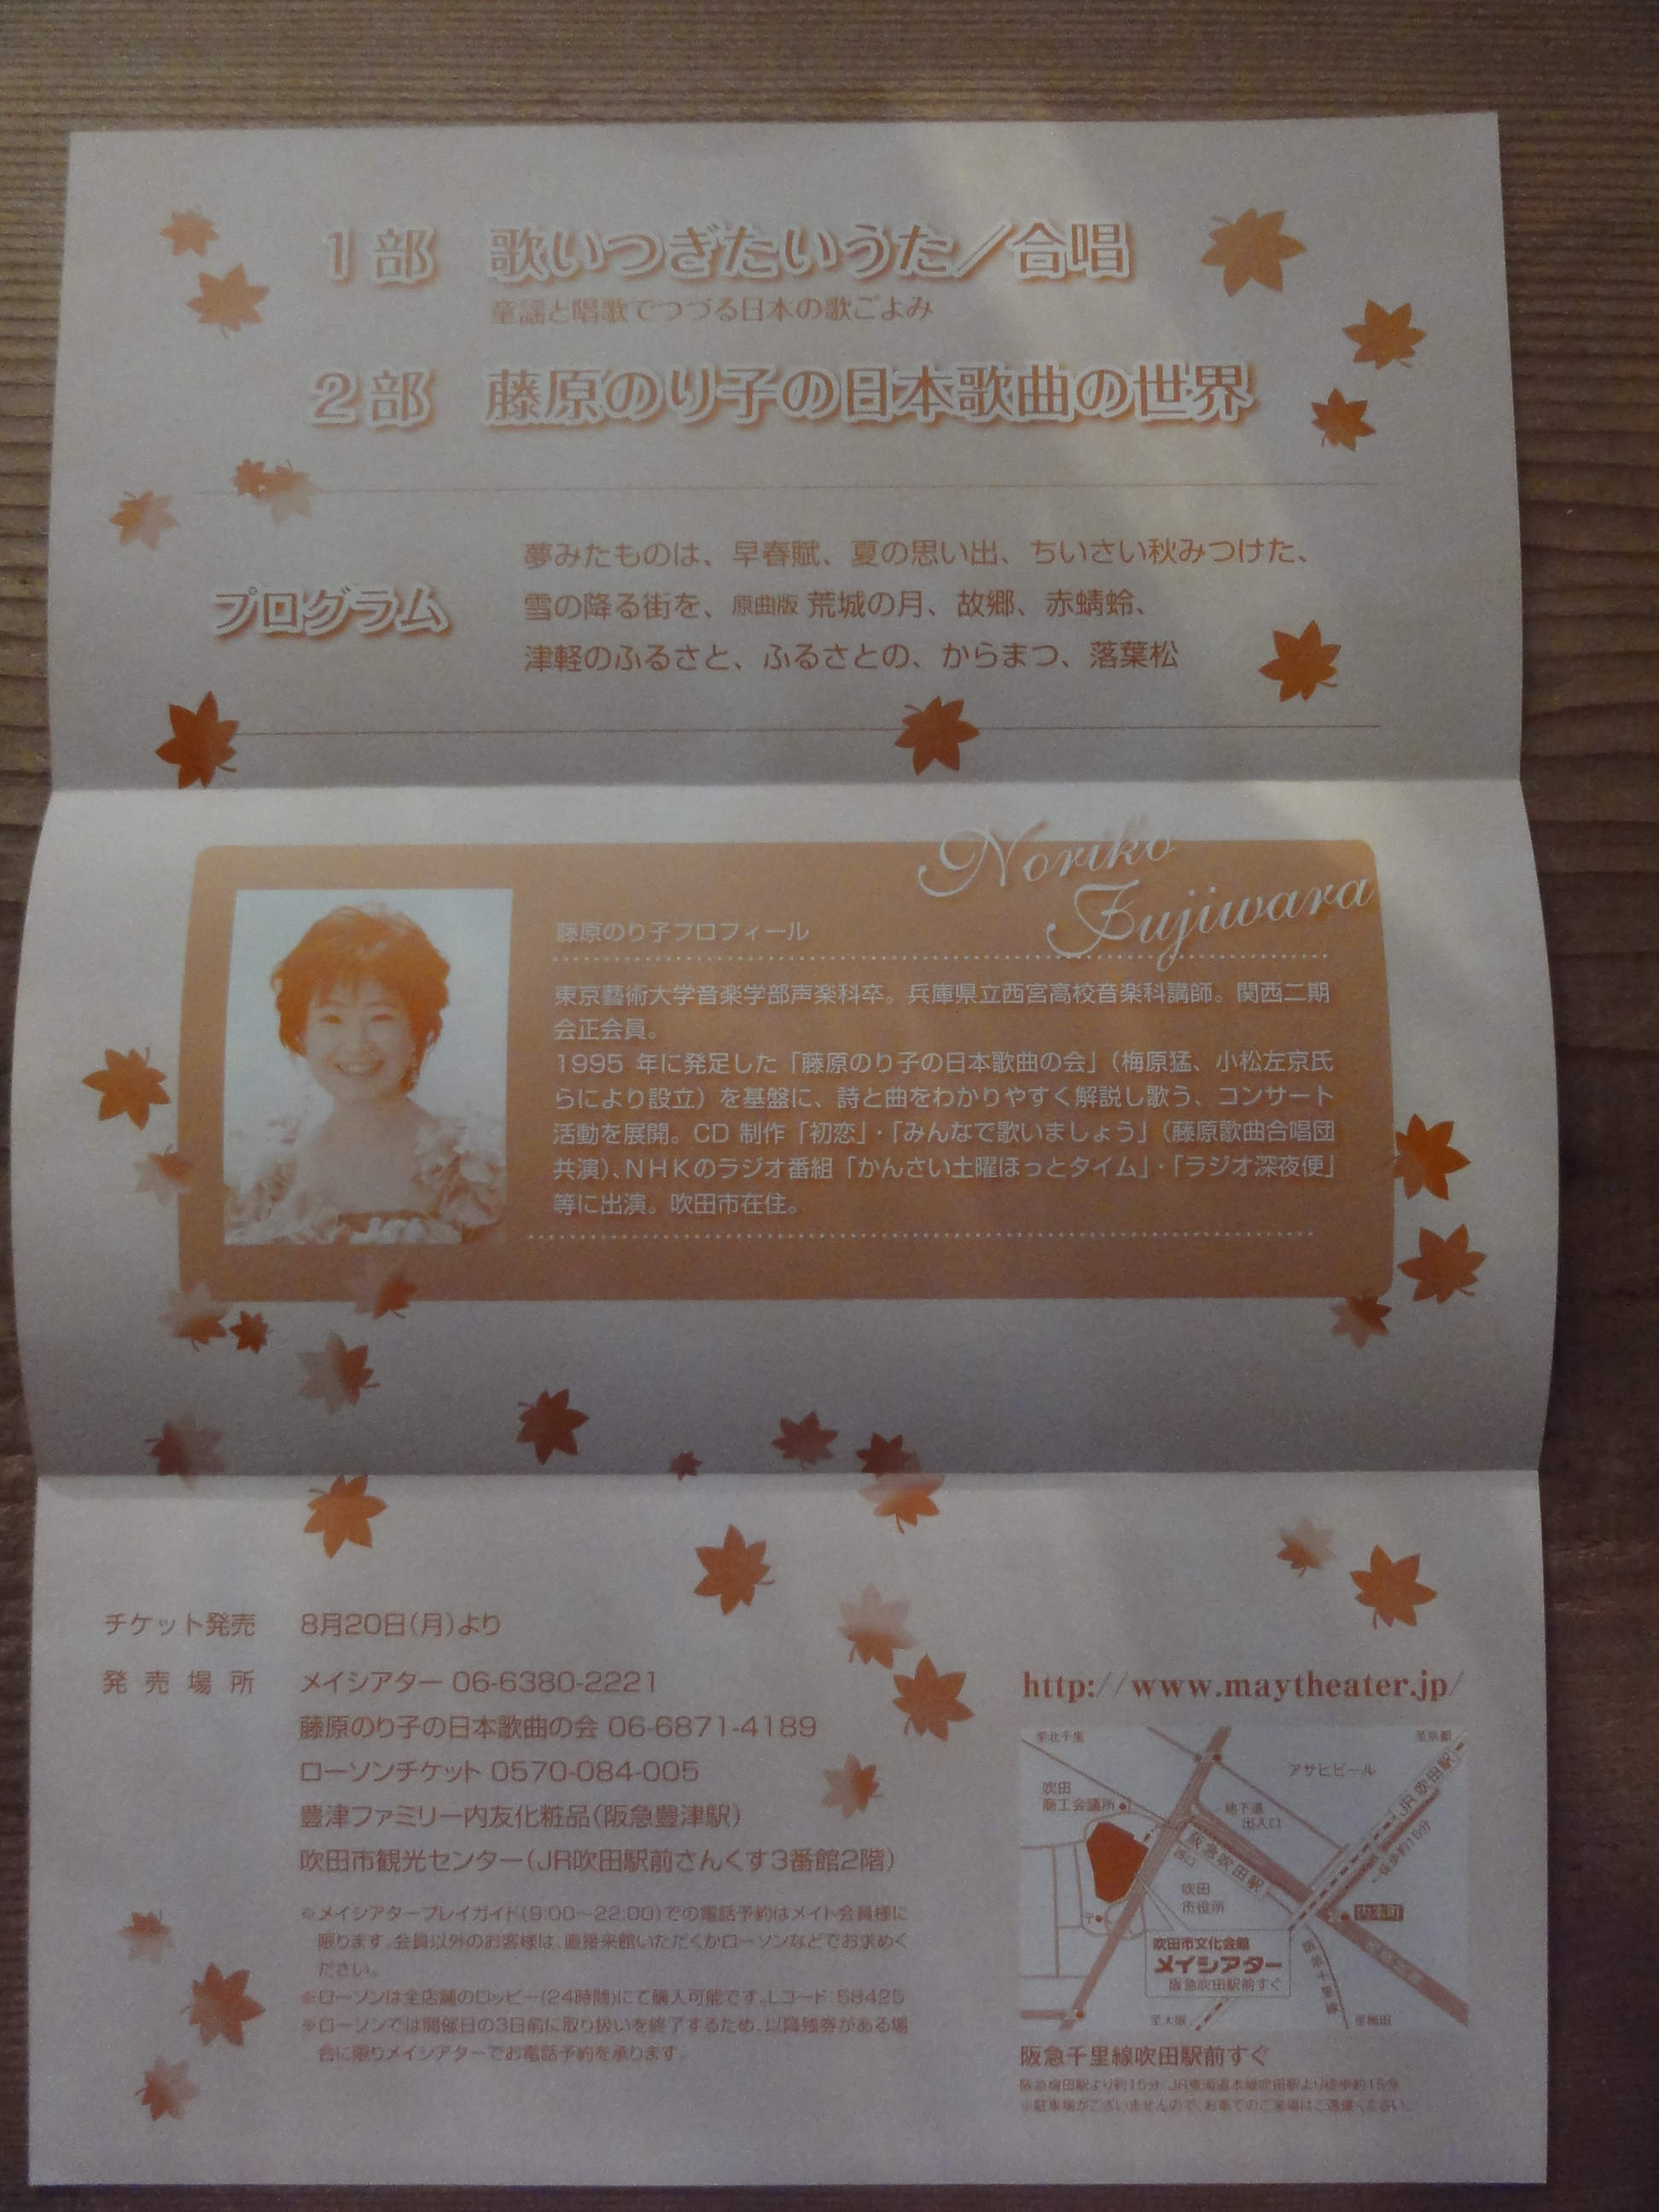 1部 歌いつぎたいうた／合唱
童謡と唱歌でつづる日本の歌ごよみ
2部 藤原のり子の日本歌曲の世界
プログラム
夢みたものは、早春賦、夏の思い出、ちいさい秋みつけた、
雪の降る街を、原曲版 荒城の月、故郷、赤蜻蛉、
津軽のふるさと、ふるさとの、からまつ、落葉松
Noriko
Fujiwara
藤原のり子プロフィール
東京藝術大学音楽学部声楽科卒。兵庫県立西宮高校音楽科講師。関西二期
会正会員。
1995 年に発足した「藤原のり子の日本歌曲の会」（梅原猛、小松左京氏
らにより設立）を基盤に、詩と曲をわかりやすく解説し歌う、コンサート
活動を展開。CD 制作「初恋」・「みんなで歌いましょう」（藤原歌曲合唱団
共演）、NHKのラジオ番組「かんさい土曜ほっとタイム」・「ラジオ深夜便」
等に出演。吹田市在住。
チケット発売 8月20日(月)より
発売場所 メイシアター 06-6380-2221
藤原のり子の日本歌曲の会 06-6871-4189
ローソンチケット 0570-084-005
豊津ファミリー内友化粧品(阪急豊津駅)
吹田市観光センター(JR吹田駅前さんくす3番館2階)
※メイシアタープレイガイド(9:00〜22:00)での電話予約はメイト会員様に
限ります。会員以外のお客様は、直接来館いただくかローソンなどでお求めく
ださい。
※ローソンは全店舗のロッピー(24時間)にて購入可能です。Lコード:58425
※ローソンでは開催日の3日前に取り扱いを終了するため、以降残券がある場
合に限りメイシアターでお電話予約を承ります。
http://www.maytheater.jp/
至北千里
至京都
アサヒビール
吹田
商工会議所
地下道
出入口
JR吹田駅
徒歩約15分
阪急吹田駅
西口
吹田
市役所
内本町
〒
吹田市文化会館
メイシアター
阪急吹田駅前すぐ
至大阪
至梅田
阪急千里線吹田駅前すぐ
※駐車場がございませんので、お車でのご来場はご遠慮ください。